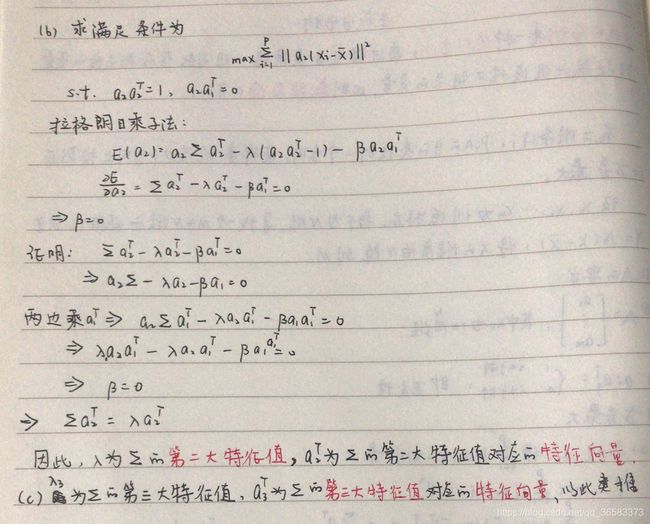 (b) 求满足条件为
max Σ_{i=1}^{P} ||a₂(xᵢ-x̄)||²
s.t. a₂a₂ᵀ=1, a₂a₁ᵀ=0
拉格朗日乘子法:
E(a₂)= a₂Σa₂ᵀ - λ(a₂a₂ᵀ-1) - βa₂a₁ᵀ
∂E/∂a₂ = Σa₂ᵀ - λa₂ᵀ - βa₁ᵀ=0
⇒ β=0
证明: Σa₂ᵀ - λa₂ᵀ - βa₁ᵀ=0
⇒ a₂Σ - λa₂ - βa₁=0
两边乘a₁ᵀ ⇒ a₂Σa₁ᵀ - λa₂a₁ᵀ - βa₁a₁ᵀ=0
⇒ λ₁a₂a₁ᵀ - λa₂a₁ᵀ - βa₁a₁ᵀ=0
⇒ β=0
⇒ Σa₂ᵀ = λa₂ᵀ
因此, λ为Σ的第二大特征值, a₂ᵀ为Σ的第二大特征值对应的特征向量.
(c) λ₃为Σ的第三大特征值, a₃ᵀ为Σ的第三大特征值对应的特征向量, 以此类推
https://blog.csdn.net/qq_36583373